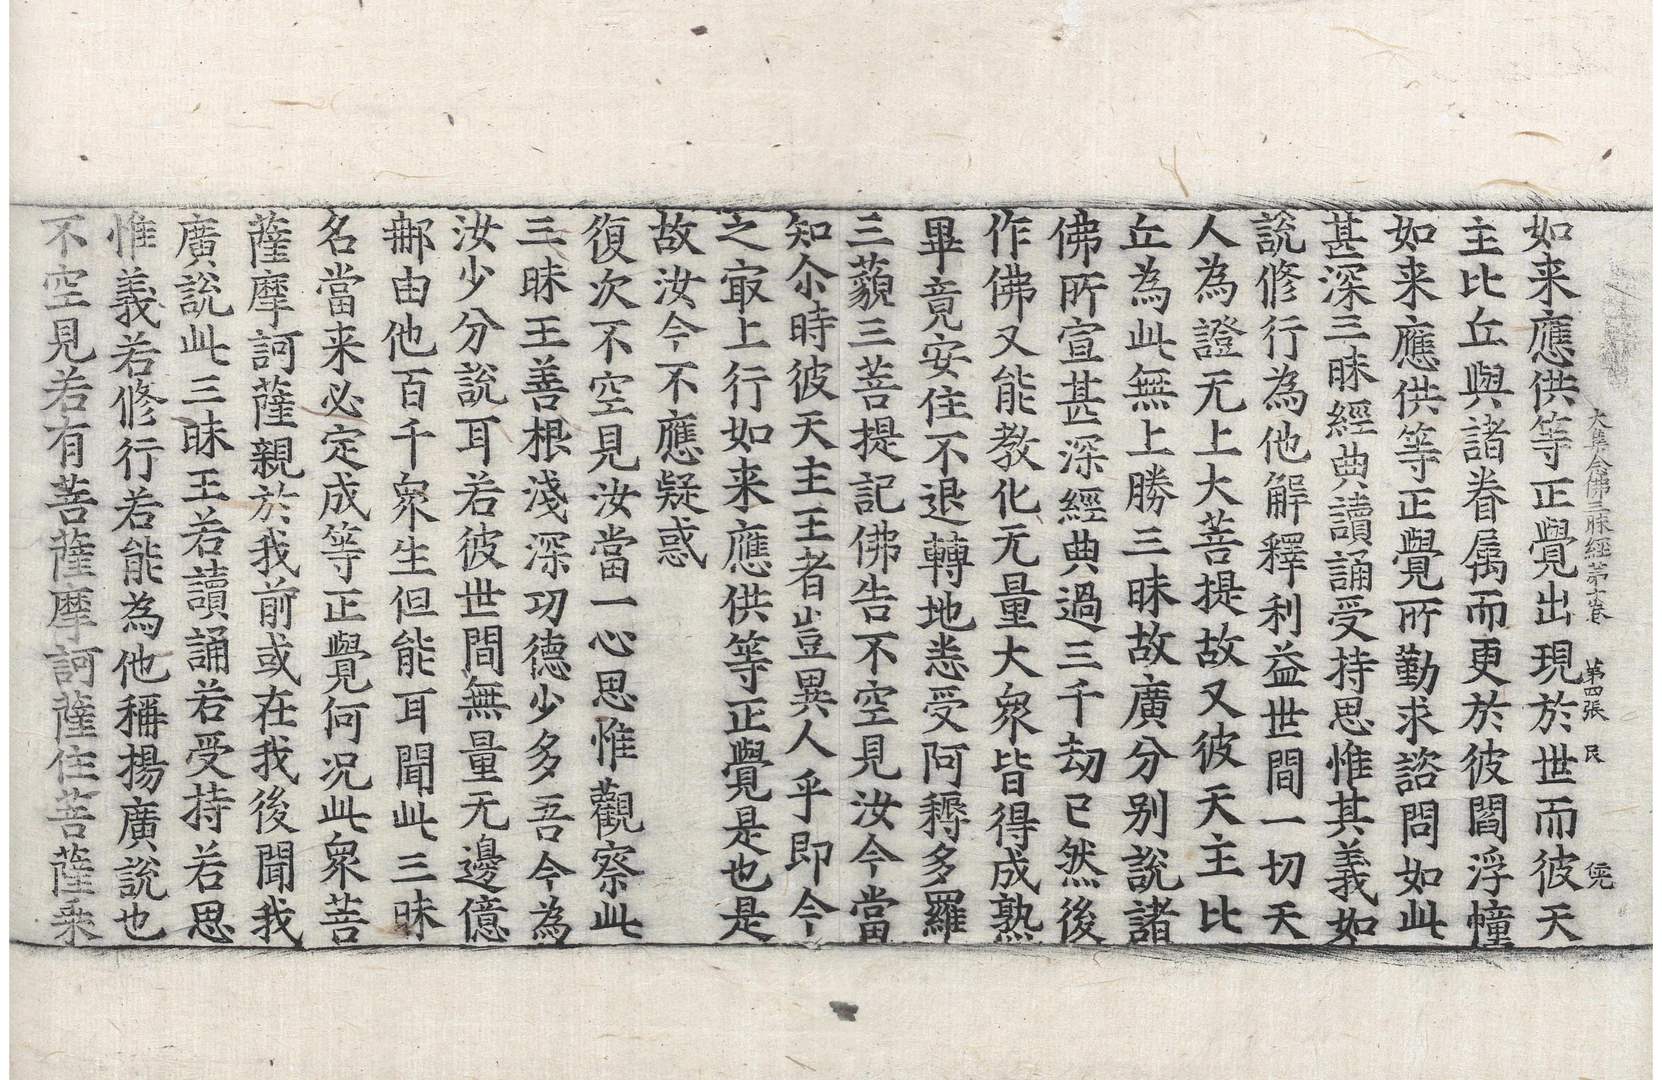 大集念佛三昧經第十卷　第四張　民
如来應供等正覺出現於世而彼天
主比丘與諸眷属而更於彼閻浮幢
如来應供等正覺所勤求諮問如此
甚深三昧經典讀誦受持思惟其義如
說修行為他解釋利益世間一切天
人為證无上大菩提故又彼天主比
丘為此無上勝三昧故廣分別說諸
佛所宣甚深經典過三千劫已然後
作佛又能教化无量大衆皆得成熟
畢竟安住不退轉地悉受阿耨多羅
三藐三菩提記佛告不空見汝今當
知尒時彼天主王者豈異人乎即今
之㝡上行如来應供等正覺是也是
故汝今不應疑惑
復次不空見汝當一心思惟觀察此
三昧王善根淺深功德少多吾今為
汝少分說耳若彼世間無量无邊億
那由他百千衆生但能耳聞此三昧
名當来必定成等正覺何況此衆菩
薩摩訶薩親於我前或在我後聞我
廣說此三昧王若讀誦若受持若思
惟義若修行若能為他稱揚廣說也
不空見若有菩薩摩訶薩住菩薩乘